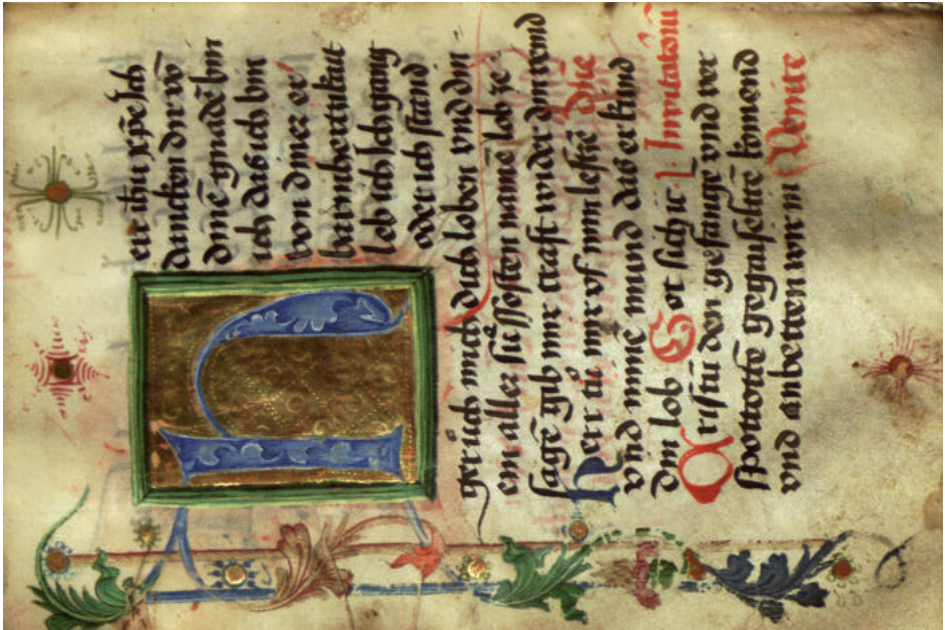 Herr ihū xp̄e Ich
dancken dir vō
dinē gnadē bin
ich das ich bin
von diner er
barmhertzikait
leb ich Ich gang
oder ich stand
gerůch mich dich loben vnd din
em aller sůssosten namē lob ze
sagē gib mir craft wider din vend
Herr tů mir vf min lefftzē Dn̄e
vnd mine mund das er kūnd
din lob Got Inuitatoriū
Cristū den gefangē vnd ver
spottotē gegaiseltē komend
vnd anbetten wir in Venite